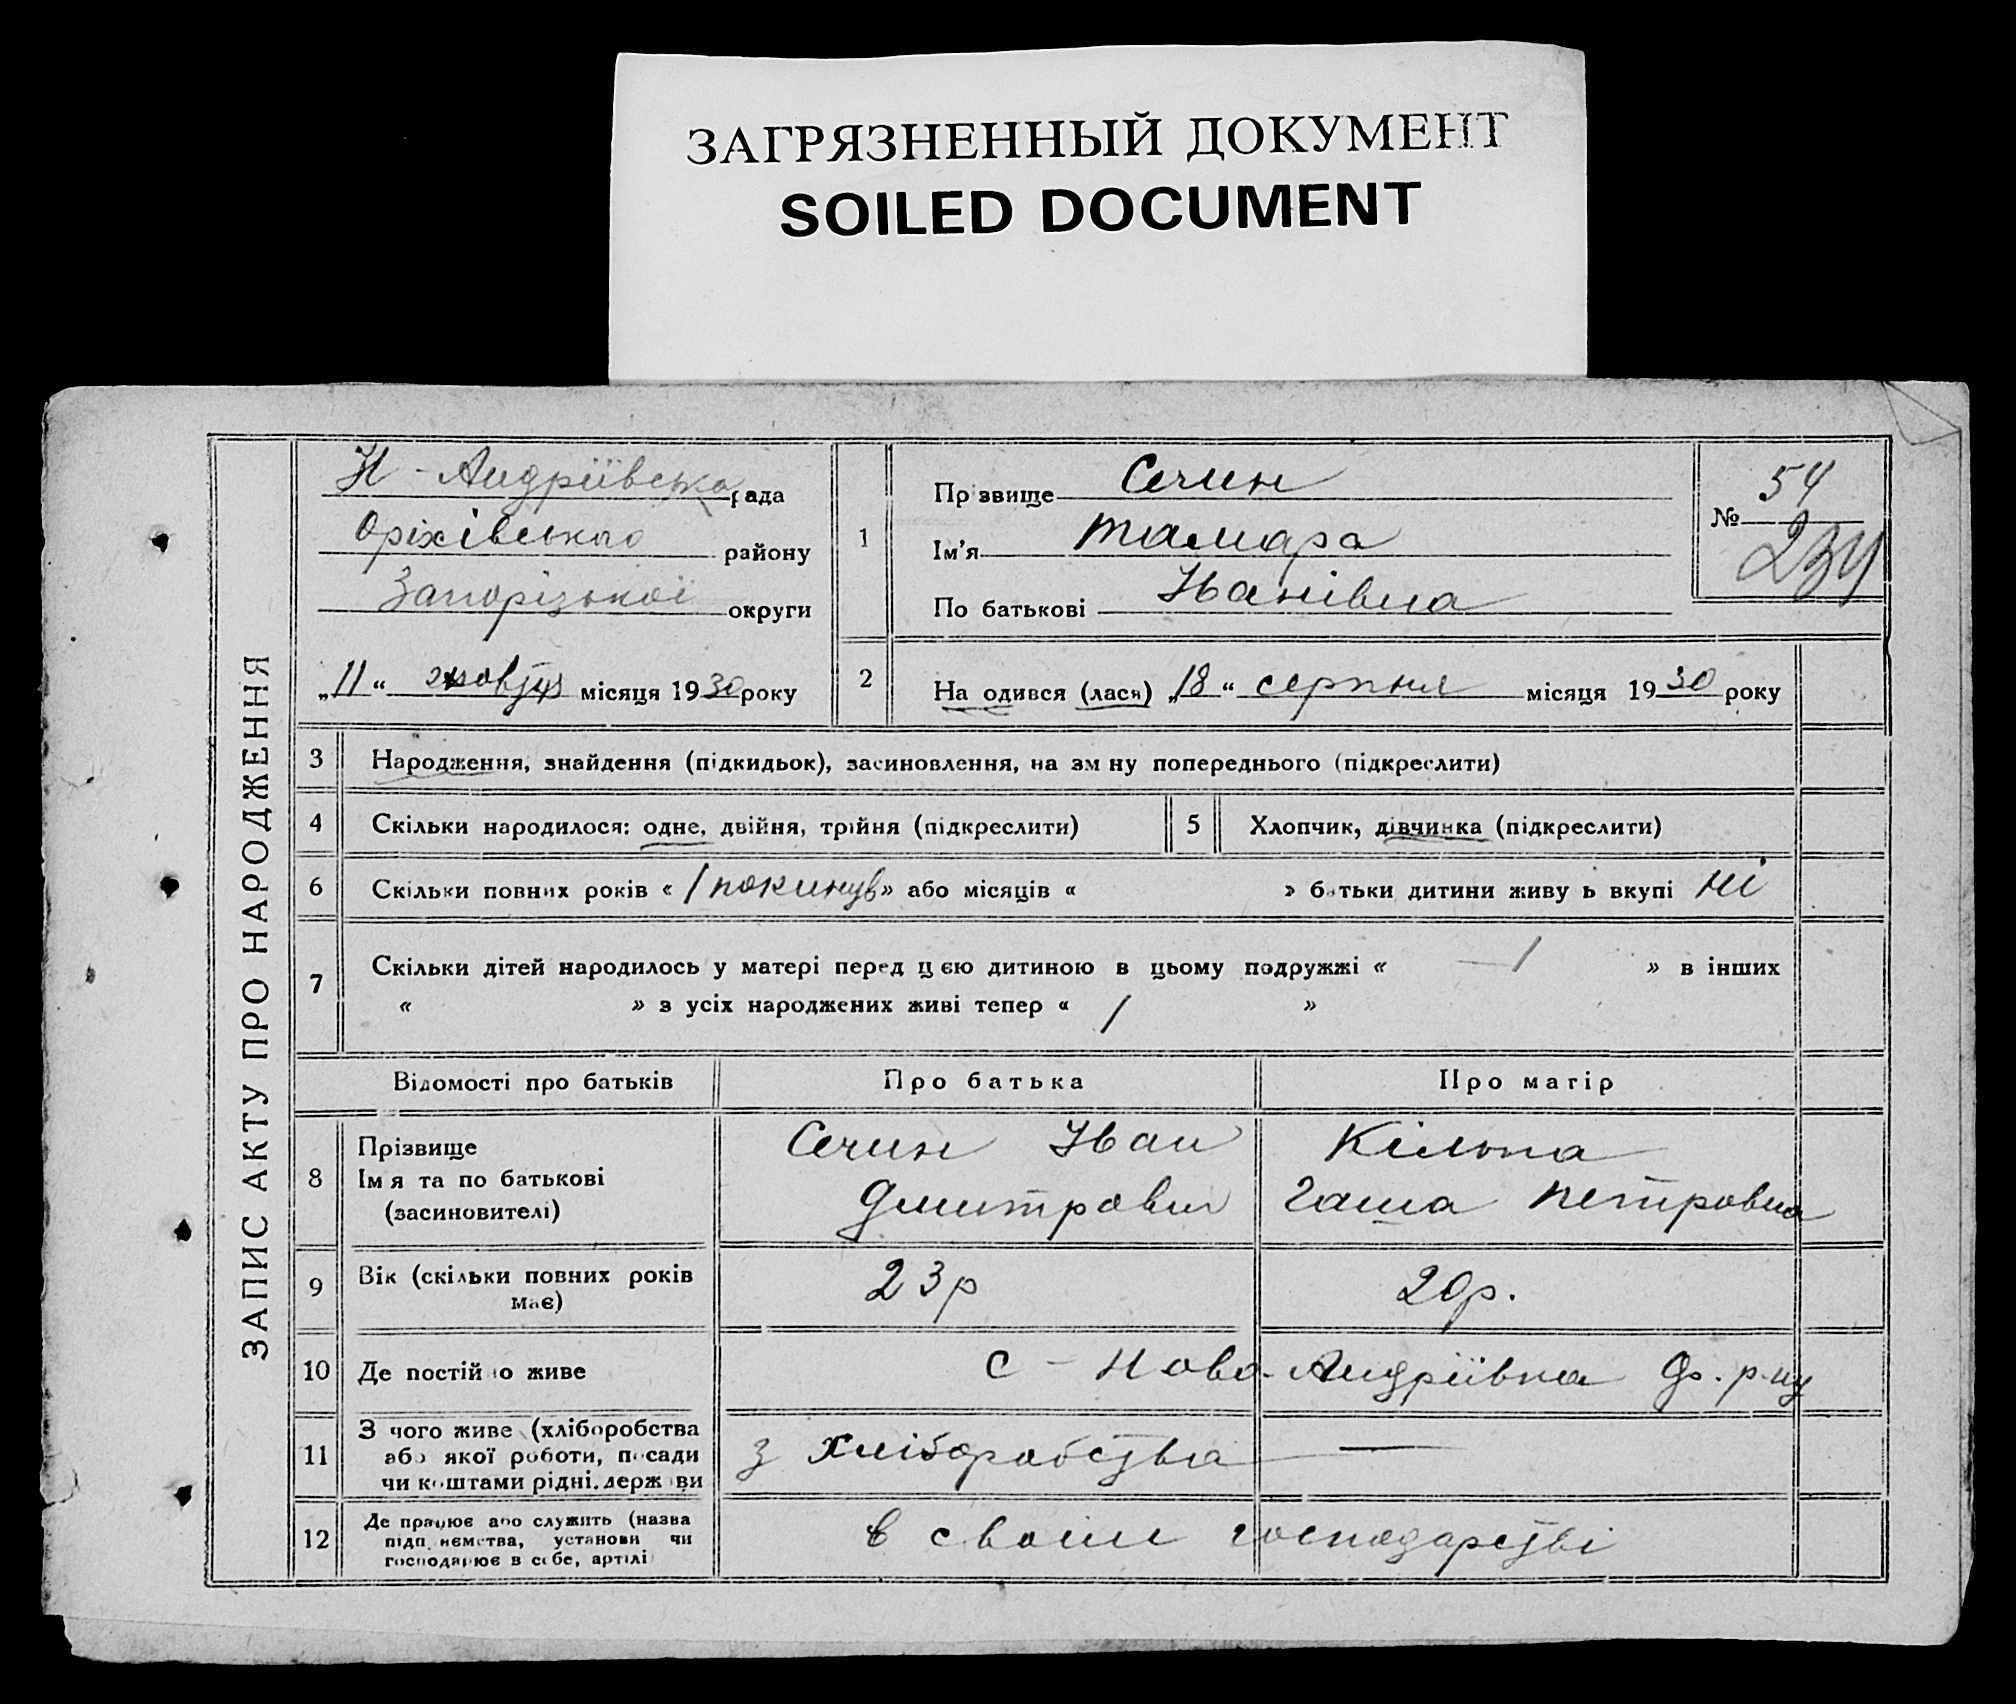 ЗАГРЯЗНЕННЫЙ ДОКУМЕНТ
SOILED DOCUMENT
ЗАПИС АКТУ ПРО НАРОДЖЕННЯ
Н - Андріївська рада
Оріхівського району
Запорізької округи
„11“ жовтня місяця 1930 року
1
Прізвище Сечин
Ім'я Тамара
По батькові Іванівна
№ 54
234
2 На одився (лася) „18“ серпня місяця 1930 року
3 Народження, знайдення (підкидьок), засиновлення, на зм ну попереднього (підкреслити)
4 Скільки народилося: одне, двійня, трійня (підкреслити)
5 Хлопчик, дівчинка (підкреслити)
6 Скільки повних років « 1 покинув » або місяців « » батьки дитини живу ь вкупі ні
7 Скільки дітей народилось у матері перед цією дитиною в цьому подружжі « — 1 » в інших
« » з усіх народжених живі тепер « 1 »
Відомості про батьків Про батька Про матір
8 Прізвище
Ім я та по батькові
(засиновителі)
Сечин Іван
Дмитрович
Кільпа
Гаша Петровна
9 Вік (скільки повних років
має)
23р 20р.
10 Де постійно живе с - Ново-Андріївка Ор. р-ну
11 З чого живе (хліборобства
або якої роботи, посади
чи коштами рідні. держ ви
з хліборобства —
12 Де працює або служить (назва
підп ремства, установи чи
господарює в себе, артілі)
в своїм господарстві